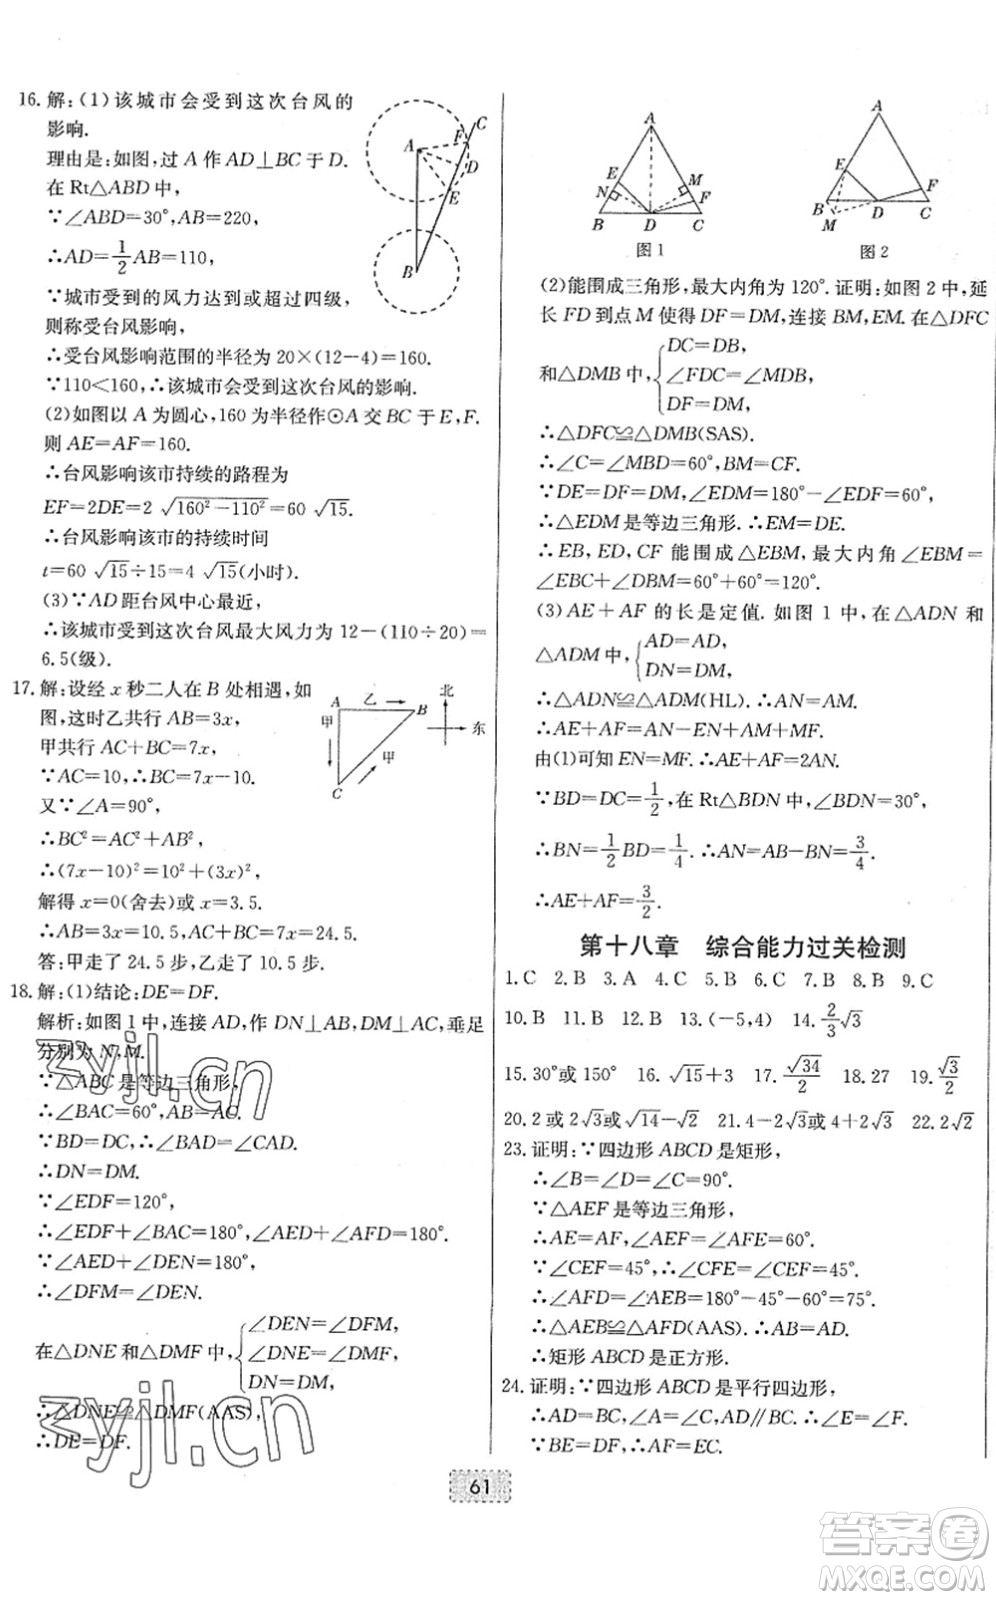 16. 解:(1)该城市会受到这次台风的
影响.
理由是:如图,过 A 作 AD⊥BC 于 D.
在 Rt△ABD 中,
∵∠ABD=30°,AB=220,
∴AD=1/2AB=110,
∵城市受到的风力达到或超过四级,
则称受台风影响,
∴受台风影响范围的半径为 20×(12-4)=160.
∵110<160,∴该城市会受到这次台风的影响.
(2)如图以 A 为圆心,160 为半径作⊙A 交 BC 于 E,F.
则 AE=AF=160.
∴台风影响该市持续的路程为
EF=2DE=2√(160²-110²)=60√15.
∴台风影响该市的持续时间
t=60√15÷15=4√15(小时).
(3)∵AD 距台风中心最近,
∴该城市受到这次台风最大风力为 12-(110÷20)=
6.5(级).
A F C D E B
17. 解:设经 x 秒二人在 B 处相遇,如
图,这时乙共行 AB=3x,
甲共行 AC+BC=7x,
∵AC=10,∴BC=7x-10.
又∵∠A=90°,
∴BC²=AC²+AB²,
∴(7x-10)²=10²+(3x)²,
解得 x=0(舍去)或 x=3.5.
∴AB=3x=10.5,AC+BC=24.5.
答:甲走了 24.5 步,乙走了 10.5 步.
A 乙 B 甲 甲 C 北 东
18. 解:(1)结论:DE=DF.
解析:如图 1 中,连接 AD,作 DN⊥AB,DM⊥AC,垂足
分别为 N,M.
∵△ABC 是等边三角形,
∴∠BAC=60°,AB=AC.
∵BD=DC,∴∠BAD=∠CAD.
∴DN=DM.
∵∠EDF=120°,
∴∠EDF+∠BAC=180°,∠AED+∠AFD=180°.
∵∠AED+∠DEN=180°,
∴∠DFM=∠DEN.
在△DNE 和△DMF 中,{∠DEN=∠DFM,
∠DNE=∠DMF,
DN=DM,
∴△DNE≌△DMF(AAS).
∴DE=DF.
A E N M F B D C
图 1
A E F B D C M
图 2
(2)能围成三角形,最大内角为 120°. 证明:如图 2 中,延
长 FD 到点 M 使得 DF=DM,连接 BM,EM. 在△DFC
和△DMB 中,{DC=DB,
∠FDC=∠MDB,
DF=DM,
∴△DFC≌△DMB(SAS).
∴∠C=∠MBD=60°,BM=CF.
∵DE=DF=DM,∠EDM=180°-∠EDF=60°,
∴△EDM 是等边三角形.∴EM=DE.
∴EB,ED,CF 能围成△EBM,最大内角∠EBM=
∠EBC+∠DBM=60°+60°=120°.
(3)AE+AF 的长是定值. 如图 1 中,在△ADN 和
△ADM 中,{AD=AD,
DN=DM,
∴△ADN≌△ADM(HL).∴AN=AM.
∴AE+AF=AN-EN+AM+MF.
由(1)可知 EN=MF.∴AE+AF=2AN.
∵BD=DC=1/2,在 Rt△BDN 中,∠BDN=30°,
∴BN=1/2BD=1/4.∴AN=AB-BN=3/4.
∴AE+AF=3/2.
第十八章 综合能力过关检测
1. C 2. B 3. A 4. C 5. B 6. C 7. B 8. B 9. C
10. B 11. B 12. B 13. (-5,4) 14. 2/3√3
15. 30°或 150° 16. √15+3 17. √34/2 18. 27 19. √3/2
20. 2 或 2√3或√14-√2 21. 4-2√3或 4+2√3 22. 2√2
23. 证明:∵四边形 ABCD 是矩形,
∴∠B=∠D=∠C=90°.
∵△AEF 是等边三角形,
∴AE=AF,∠AEF=∠AFE=60°.
∵∠CEF=45°,∴∠CFE=∠CEF=45°.
∴∠AFD=∠AEB=180°-45°-60°=75°.
∴△AEB≌△AFD(AAS).∴AB=AD.
∴矩形 ABCD 是正方形.
24. 证明:∵四边形 ABCD 是平行四边形,
∴AD=BC,∠A=∠C,AD∥BC.∴∠E=∠F.
∵BE=DF,∴AF=EC.
61
zyjl.cn
zyjl.cn
答案圈
MXQE.COM